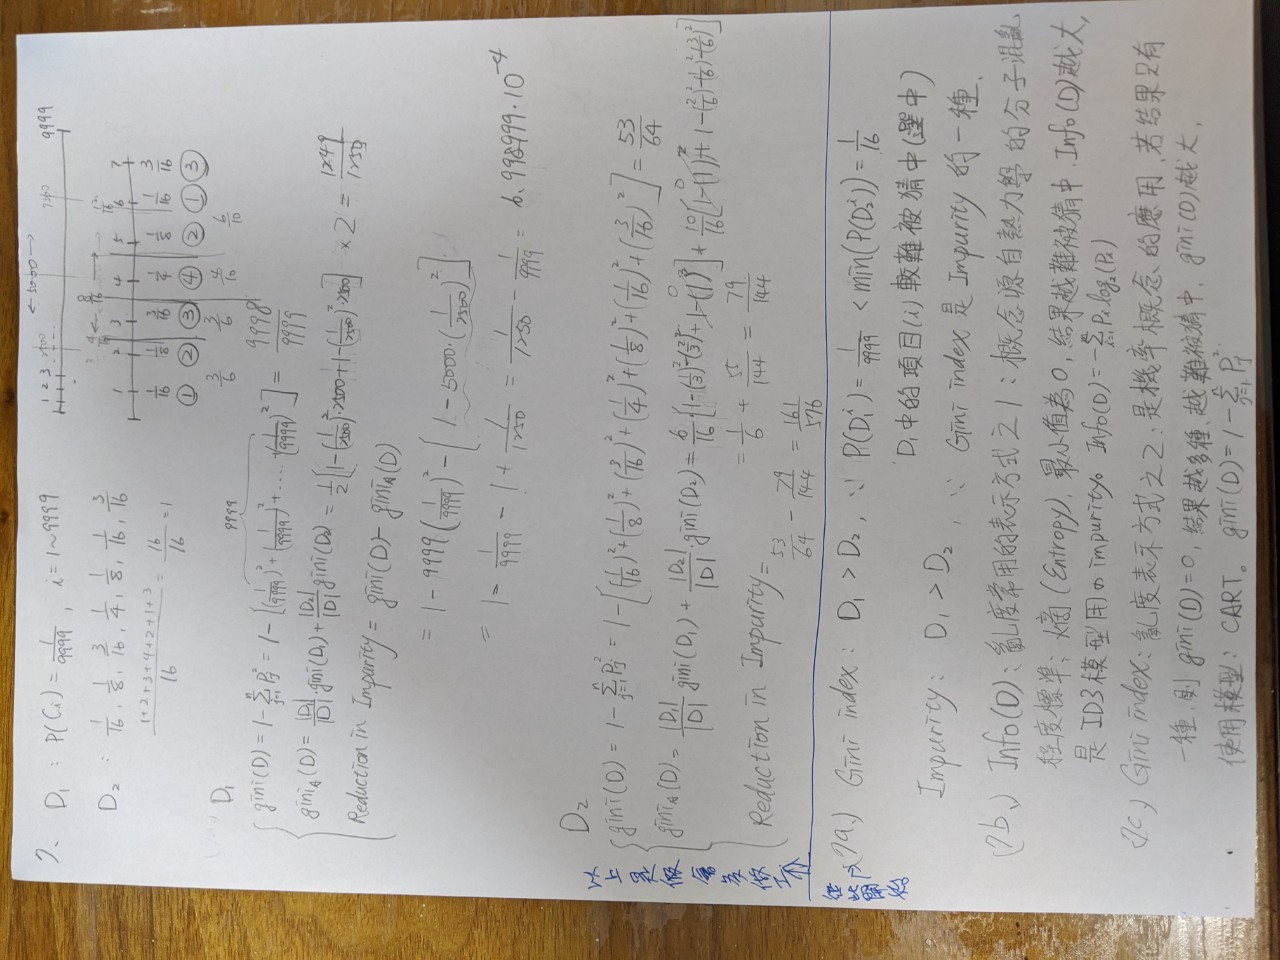 7. D₁ : P(Cᵢ) = 1/9999, i = 1~9999
D₂ : 1/16, 1/8, 3/16, 1/4, 1/8, 1/16, 3/16
(1+2+3+4+2+1+3)/16 = 16/16 = 1
1 2 3 2500 ← 5000 → 7500 9999
4/16 ← 8/16 → 12/16
1 2 3 4 5 6 7
1/16 1/8 3/16 1/4 1/8 1/16 3/16
① ② ③ ④ ② ① ③
3/6 3/6 4/10 6/10
D₁
9999
gini(D) = 1 - Σⁿⱼ₌₁ Pⱼ² = 1 - [(1/9999)² + (1/9999)² + .... + (1/9999)²] = 9998/9999
gini_A(D) = |D₁|/|D| · gini(D₁) + |D₂|/|D| gini(D₂) = 1/2 [1 - (1/2500)²·2500 + 1 - (1/2500)²·2500] × 2 = 1249/1250
Reduction in Impurity = gini(D) - gini_A(D)
= 1 - 9999(1/9999)² - [1 - 5000·(1/2500)²]
= 1 - 1/9999 - 1 + 1/1250 = 1/1250 - 1/9999 = 6.998999·10⁻⁴
D₂
gini(D) = 1 - Σⁿⱼ₌₁ Pⱼ² = 1 - [(1/16)² + (1/8)² + (3/16)² + (1/4)² + (1/8)² + (1/16)² + (3/16)²] = 53/64
gini_A(D) = |D₁|/|D| gini(D₁) + |D₂|/|D| · gini(D₂) = 6/16 · [1 - (1/3)² - (2/3)² + 1 - (1)²] + 10/16 [1 - (1)² + 1 - (2/6)² - (1/6)² - (3/6)²]
= 1/6 + 55/144 = 79/144
Reduction in Impurity = 53/64 - 79/144 = 161/576
以上是假會多做工
從此開始
(7a.) Gini index : D₁ > D₂, ∵ P(D₁ⁱ) = 1/9999 < min(P(D₂ⁱ)) = 1/16
D₁中的項目(i)較難被猜中(選中)
Impurity : D₁ > D₂, ∵ Gini index 是 Impurity 的一種.
(7b.) Info(D) : 亂度常用的表示方式之1 : 概念源自熱力學的分子混亂
程度標準 : 熵 (Entropy), 最小值為0, 結果越難被猜中, Info(D)越大,
是ID3模型用の impurity。 Info(D) = -Σⁿᵢ₌₁ Pᵢ log₂(Pᵢ)
(7c) Gini index : 亂度表示方式之2 : 是機率概念的應用, 若結果只有
一種, 則 gini(D)=0, 結果越多種、越難被猜中, gini(D)越大,
使用模型 : CART。 gini(D) = 1 - Σⁿⱼ₌₁ Pⱼ²